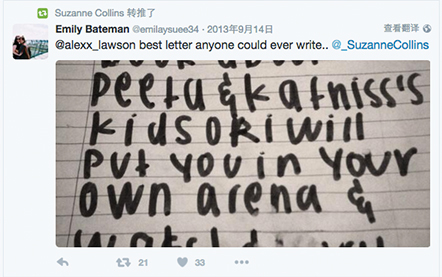 Suzanne Collins 转推了
Emily Bateman @emilaysuee34 · 2013年9月14日 查看翻译
@alexx_lawson best letter anyone could ever write.. @_SuzanneCollins
peeta & katniss's
kids or i will
put you in your
own arena &
21 33